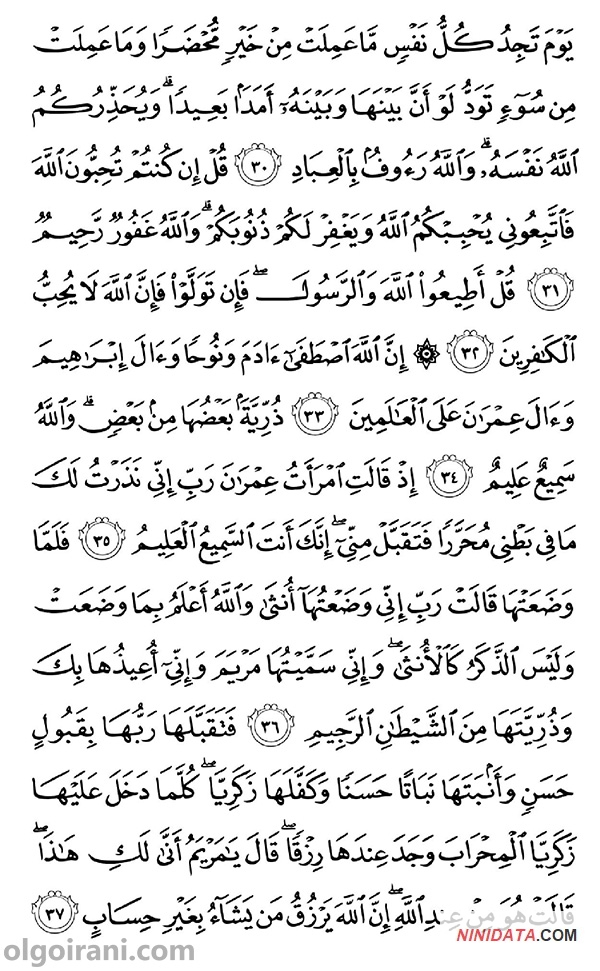 يَوْمَ تَجِدُ كُلُّ نَفْسٍ مَّا عَمِلَتْ مِنْ خَيْرٍ مُّحْضَرًا وَمَا عَمِلَتْ
مِن سُوٓءٍ تَوَدُّ لَوْ أَنَّ بَيْنَهَا وَبَيْنَهُۥٓ أَمَدًۢا بَعِيدًا ۗ وَيُحَذِّرُكُمُ
ٱللَّهُ نَفْسَهُۥ ۗ وَٱللَّهُ رَءُوفٌۢ بِٱلْعِبَادِ ٣٠ قُلْ إِن كُنتُمْ تُحِبُّونَ ٱللَّهَ
فَٱتَّبِعُونِي يُحْبِبْكُمُ ٱللَّهُ وَيَغْفِرْ لَكُمْ ذُنُوبَكُمْ ۗ وَٱللَّهُ غَفُورٌ رَّحِيمٌ
٣١ قُلْ أَطِيعُوا۟ ٱللَّهَ وَٱلرَّسُولَ ۖ فَإِن تَوَلَّوْا۟ فَإِنَّ ٱللَّهَ لَا يُحِبُّ
ٱلْكَٰفِرِينَ ٣٢ ۞ إِنَّ ٱللَّهَ ٱصْطَفَىٰٓ ءَادَمَ وَنُوحًا وَءَالَ إِبْرَٰهِيمَ
وَءَالَ عِمْرَٰنَ عَلَى ٱلْعَٰلَمِينَ ٣٣ ذُرِّيَّةًۢ بَعْضُهَا مِنۢ بَعْضٍ ۗ وَٱللَّهُ
سَمِيعٌ عَلِيمٌ ٣٤ إِذْ قَالَتِ ٱمْرَأَتُ عِمْرَٰنَ رَبِّ إِنِّي نَذَرْتُ لَكَ
مَا فِي بَطْنِي مُحَرَّرًا فَتَقَبَّلْ مِنِّيٓ ۖ إِنَّكَ أَنتَ ٱلسَّمِيعُ ٱلْعَلِيمُ ٣٥ فَلَمَّا
وَضَعَتْهَا قَالَتْ رَبِّ إِنِّي وَضَعْتُهَآ أُنثَىٰ وَٱللَّهُ أَعْلَمُ بِمَا وَضَعَتْ
وَلَيْسَ ٱلذَّكَرُ كَٱلْأُنثَىٰ ۖ وَإِنِّي سَمَّيْتُهَا مَرْيَمَ وَإِنِّيٓ أُعِيذُهَا بِكَ
وَذُرِّيَّتَهَا مِنَ ٱلشَّيْطَٰنِ ٱلرَّجِيمِ ٣٦ فَتَقَبَّلَهَا رَبُّهَا بِقَبُولٍ
حَسَنٍ وَأَنۢبَتَهَا نَبَاتًا حَسَنًا وَكَفَّلَهَا زَكَرِيَّا ۖ كُلَّمَا دَخَلَ عَلَيْهَا
زَكَرِيَّا ٱلْمِحْرَابَ وَجَدَ عِندَهَا رِزْقًا ۖ قَالَ يَٰمَرْيَمُ أَنَّىٰ لَكِ هَٰذَا ۖ
قَالَتْ هُوَ مِنْ عِندِ ٱللَّهِ ۖ إِنَّ ٱللَّهَ يَرْزُقُ مَن يَشَآءُ بِغَيْرِ حِسَابٍ ٣٧
NINIDATA.COM
olgoirani.com